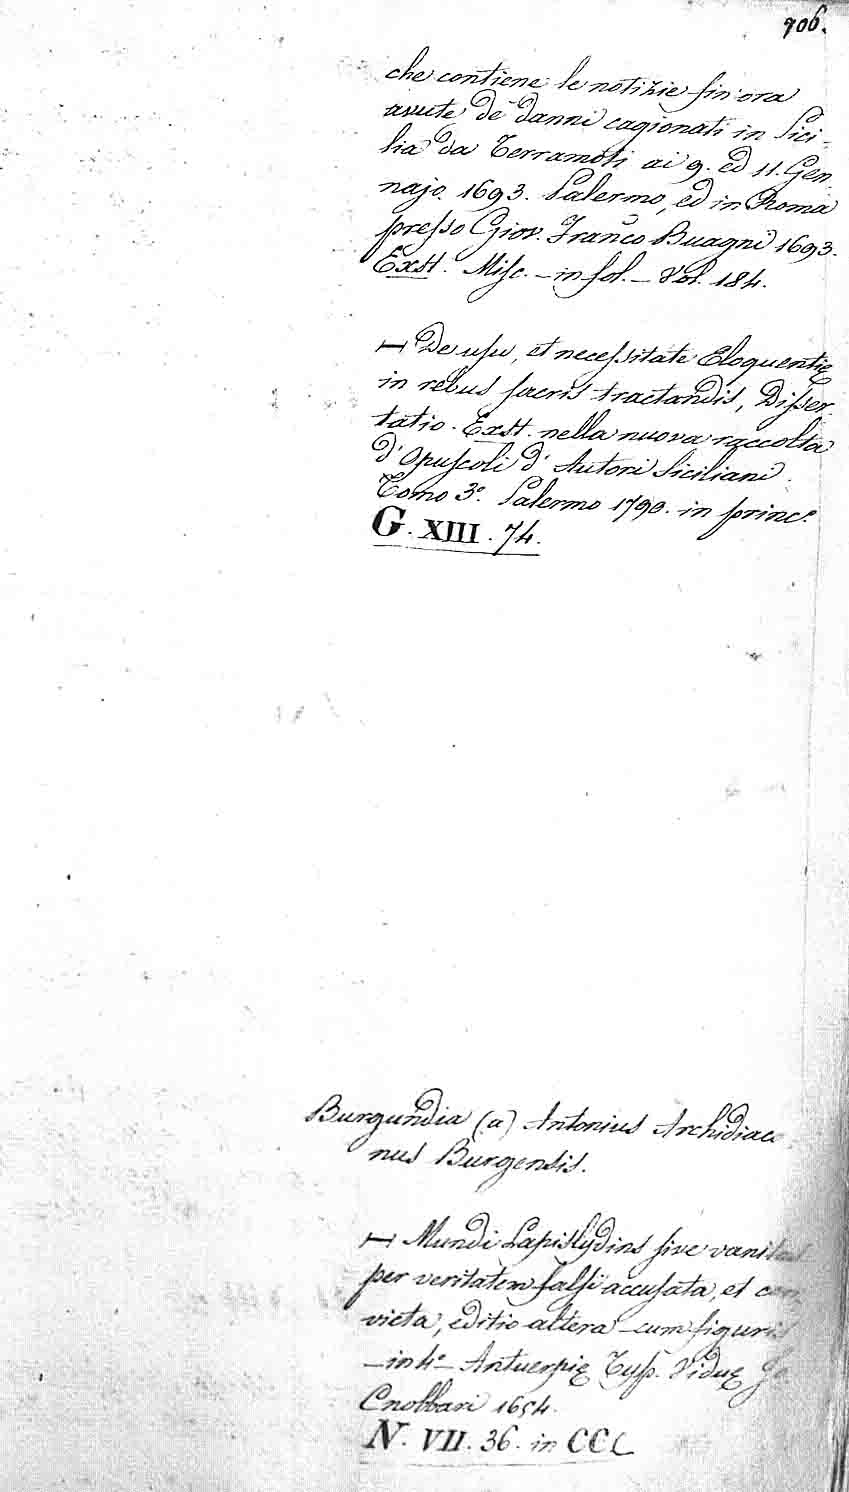 906.
che contiene le notizie fin'ora
avute de' danni cagionati in Sici-
lia da Terramoti ai 9. ed 11. Gen
najo. 1693. Palermo, ed in Roma
presso Giov. Franco Buagni 1693.
Exst. Misc. - in fol. - Vol. 184.
De usu, et necessitate Eloquentię
in rebus sacris tractandis, Disser-
tatio. Exst. nella nuova raccolta
d'Opuscoli d'Autori Siciliani.
Tomo 3.º Palermo 1790. in princ.º
G. XIII. 74.
Burgundia (a) Antonius Archidiaco
nus Burgensis.
Mundi Lapislydius sive vanitas
per veritatem falsi accusata, et con
victa, editio altera - cum figuris
- in 4.º - Antuerpię Typ. Viduę Jo
Cnobbari 1654.
N. VII. 36. in CCC